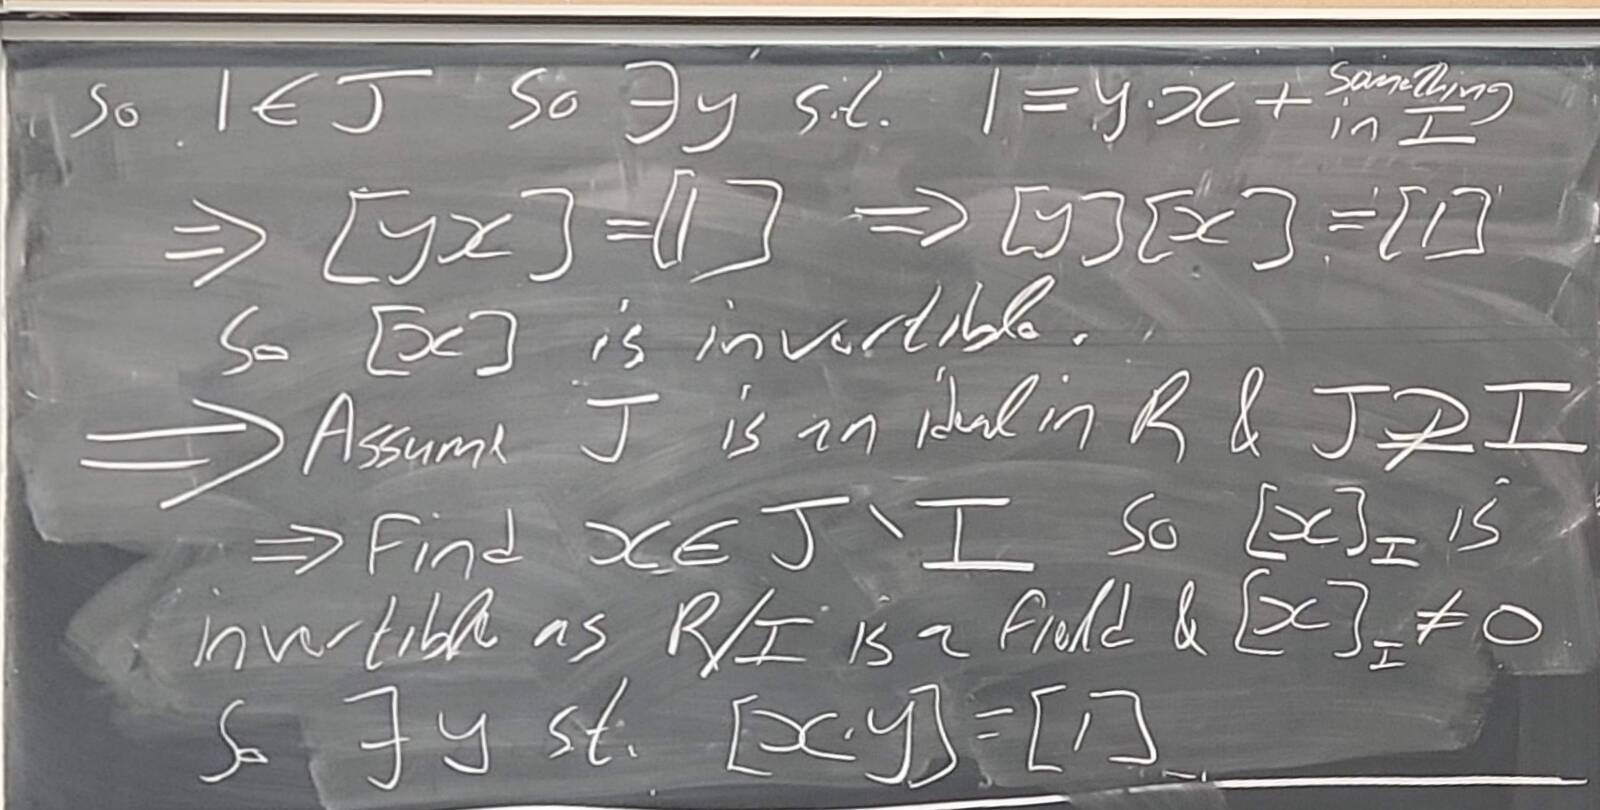 So 1 ∈ J So ∃y s.t. 1 = y·x + something in I
⇒ [yx] = [1] ⇒ [y][x] = [1]
So [x] is invertible.
⇒ Assume J is an ideal in R & J ⊋ I
⇒ Find x ∈ J \ I So [x]_I is
invertible as R/I is a field & [x]_I ≠ 0
So ∃ y st. [x·y] = [1]